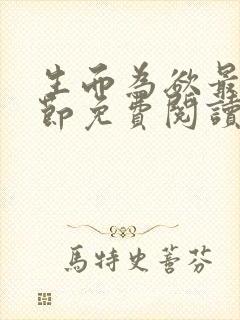 生而為欲最
節免費閱讀
馬特史菩芬